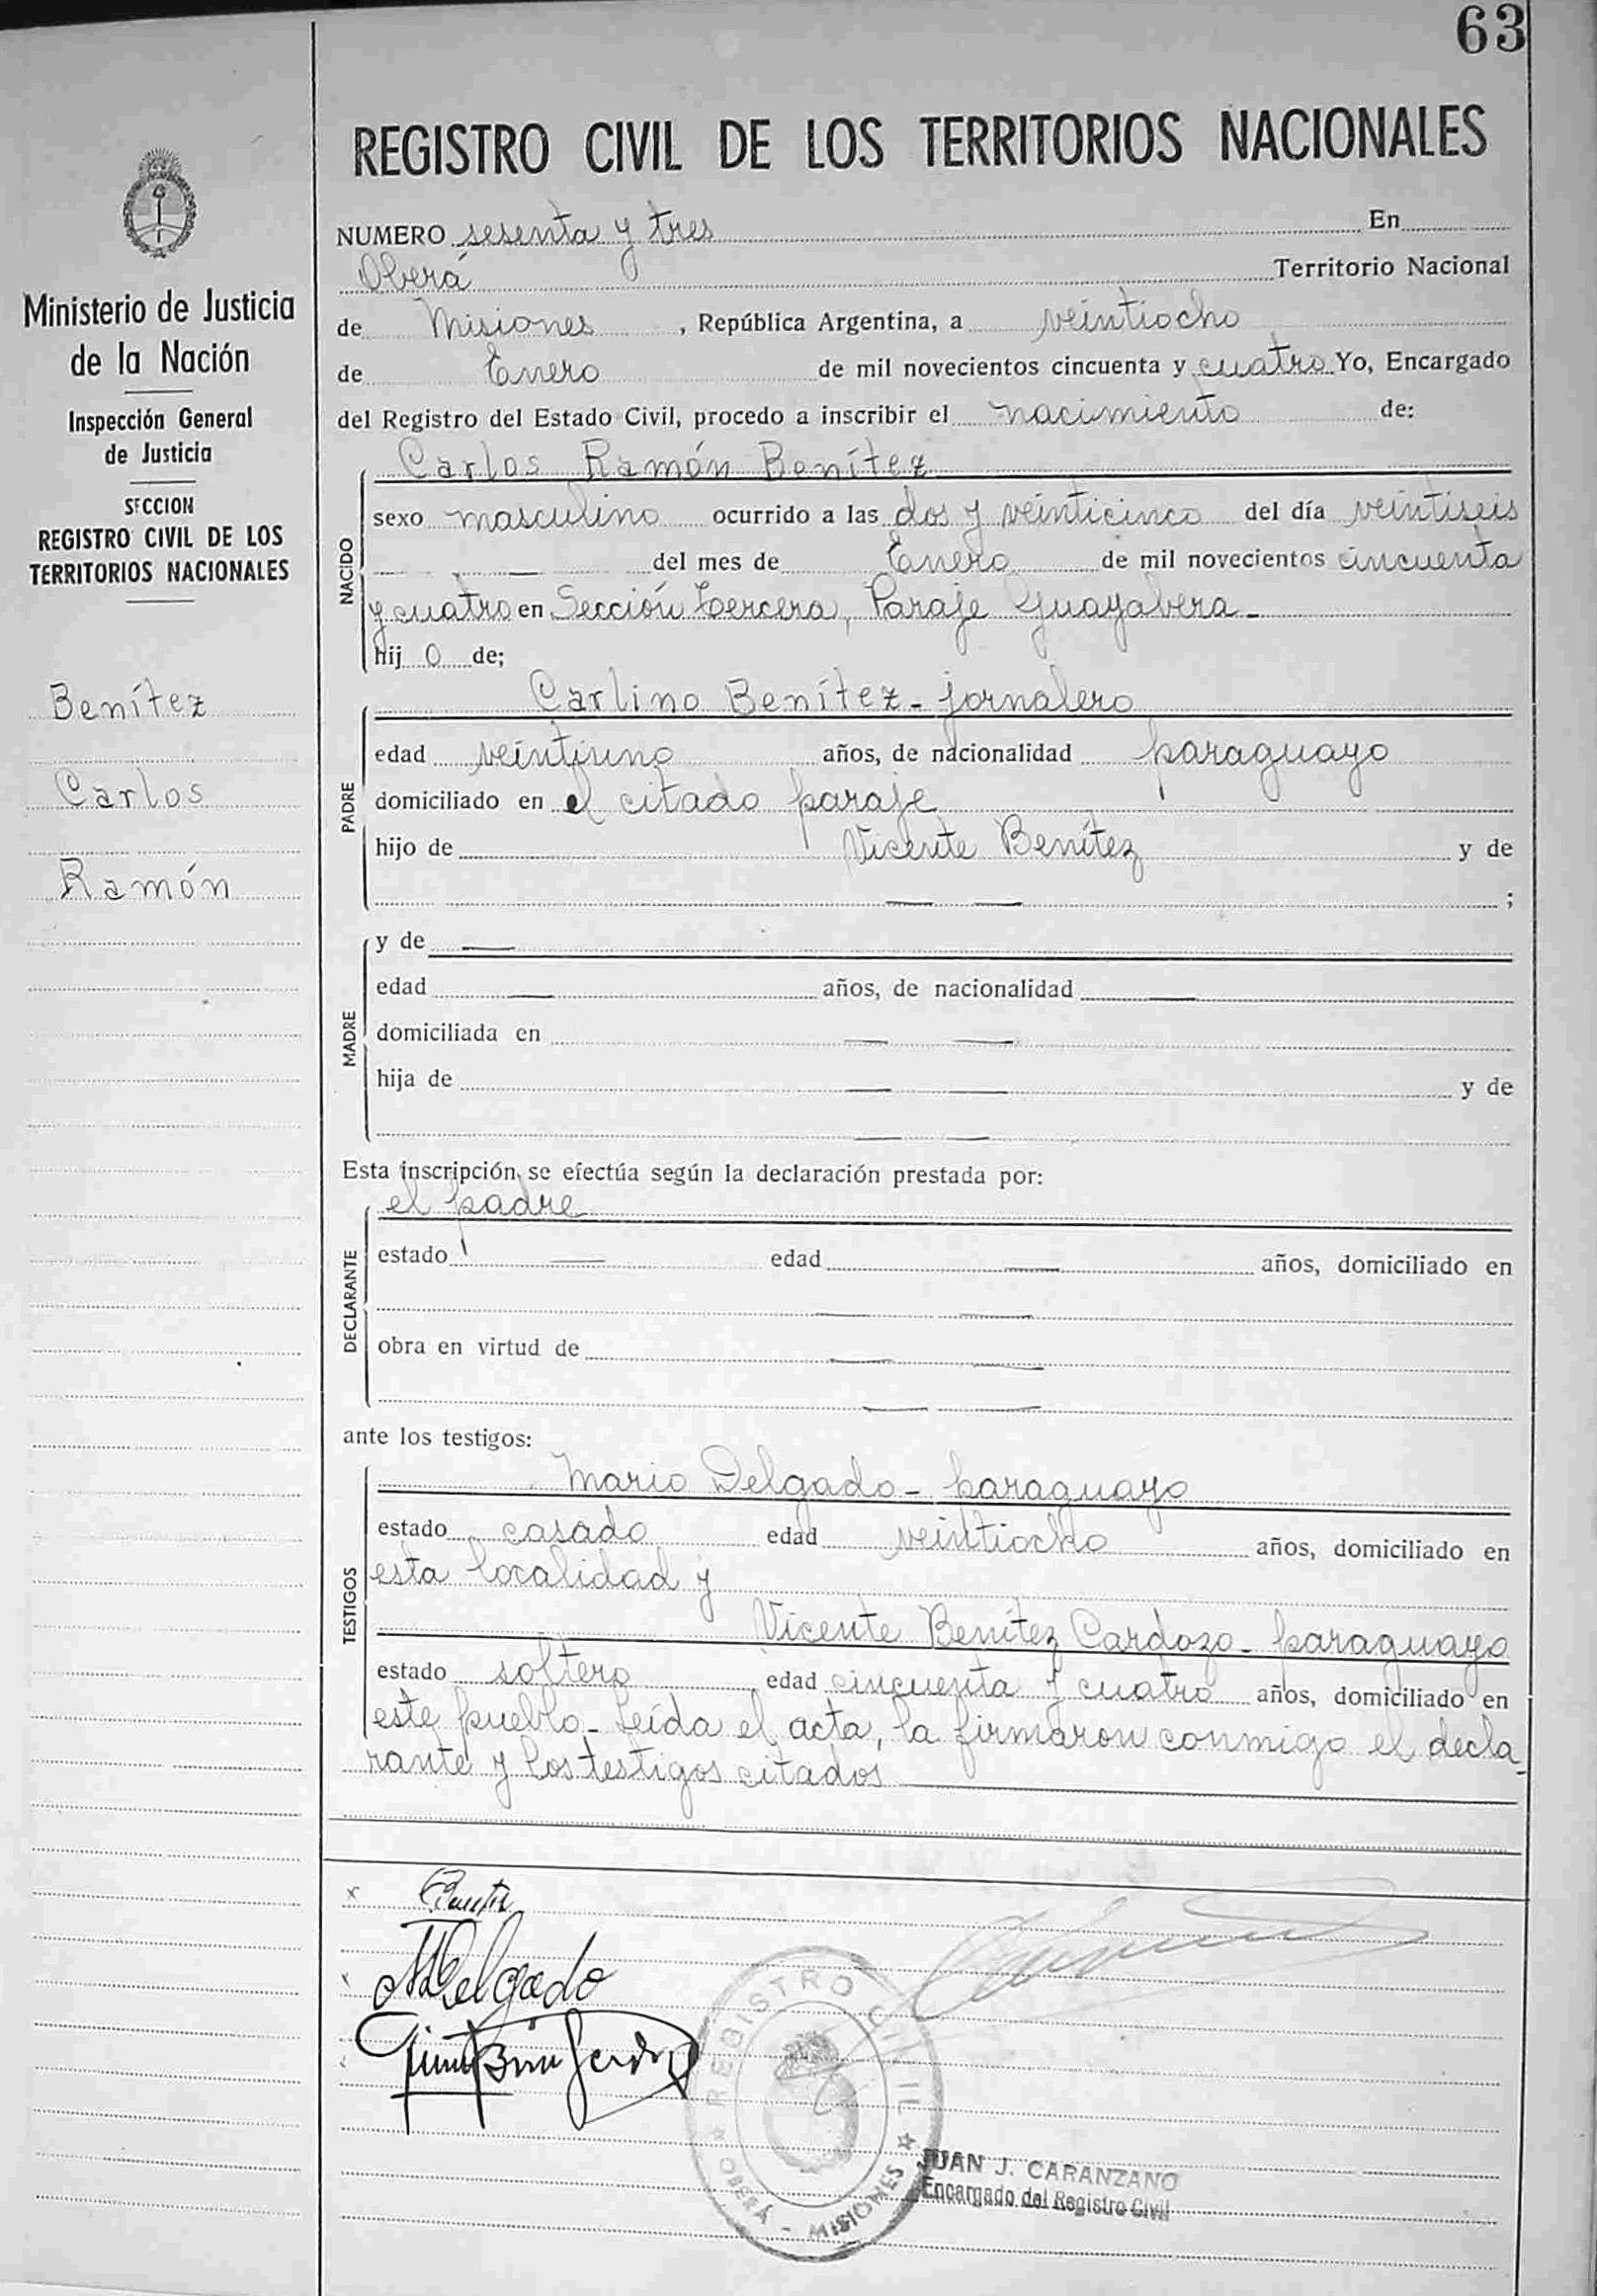 63
REGISTRO CIVIL DE LOS TERRITORIOS NACIONALES
Ministerio de Justicia
de la Nación
Inspección General
de Justicia
SECCION
REGISTRO CIVIL DE LOS
TERRITORIOS NACIONALES
Benítez
Carlos
Ramón
NUMERO sesenta y tres En
Oberá Territorio Nacional
de Misiones, República Argentina, a veintiocho
de Enero de mil novecientos cincuenta y cuatro Yo, Encargado
del Registro del Estado Civil, procedo a inscribir el nacimiento de:
NACIDO
Carlos Ramón Benítez
sexo masculino ocurrido a las dos y veinticinco del día veintiseis
del mes de Enero de mil novecientos cincuenta
y cuatro en Sección tercera, Paraje Guayabera
hij o de;
PADRE
Carlino Benítez - jornalero
edad veintiuno años, de nacionalidad paraguayo
domiciliado en el citado paraje
hijo de Vicente Benítez y de
;
MADRE
y de
edad años, de nacionalidad
domiciliada en
hija de y de
Esta inscripción se efectúa según la declaración prestada por:
DECLARANTE
el padre
estado edad años, domiciliado en
obra en virtud de
ante los testigos:
TESTIGOS
Mario Delgado - paraguayo
estado casado edad veintiocho años, domiciliado en
esta localidad y
Vicente Benítez Cardozo - paraguayo
estado soltero edad cincuenta y cuatro años, domiciliado en
este pueblo - Leída el acta, la firmaron conmigo el decla
rante y los testigos citados
MDelgado
REGISTRO CIVIL
OBERÁ - MISIONES
JUAN J. CARANZANO
Encargado del Registro Civil